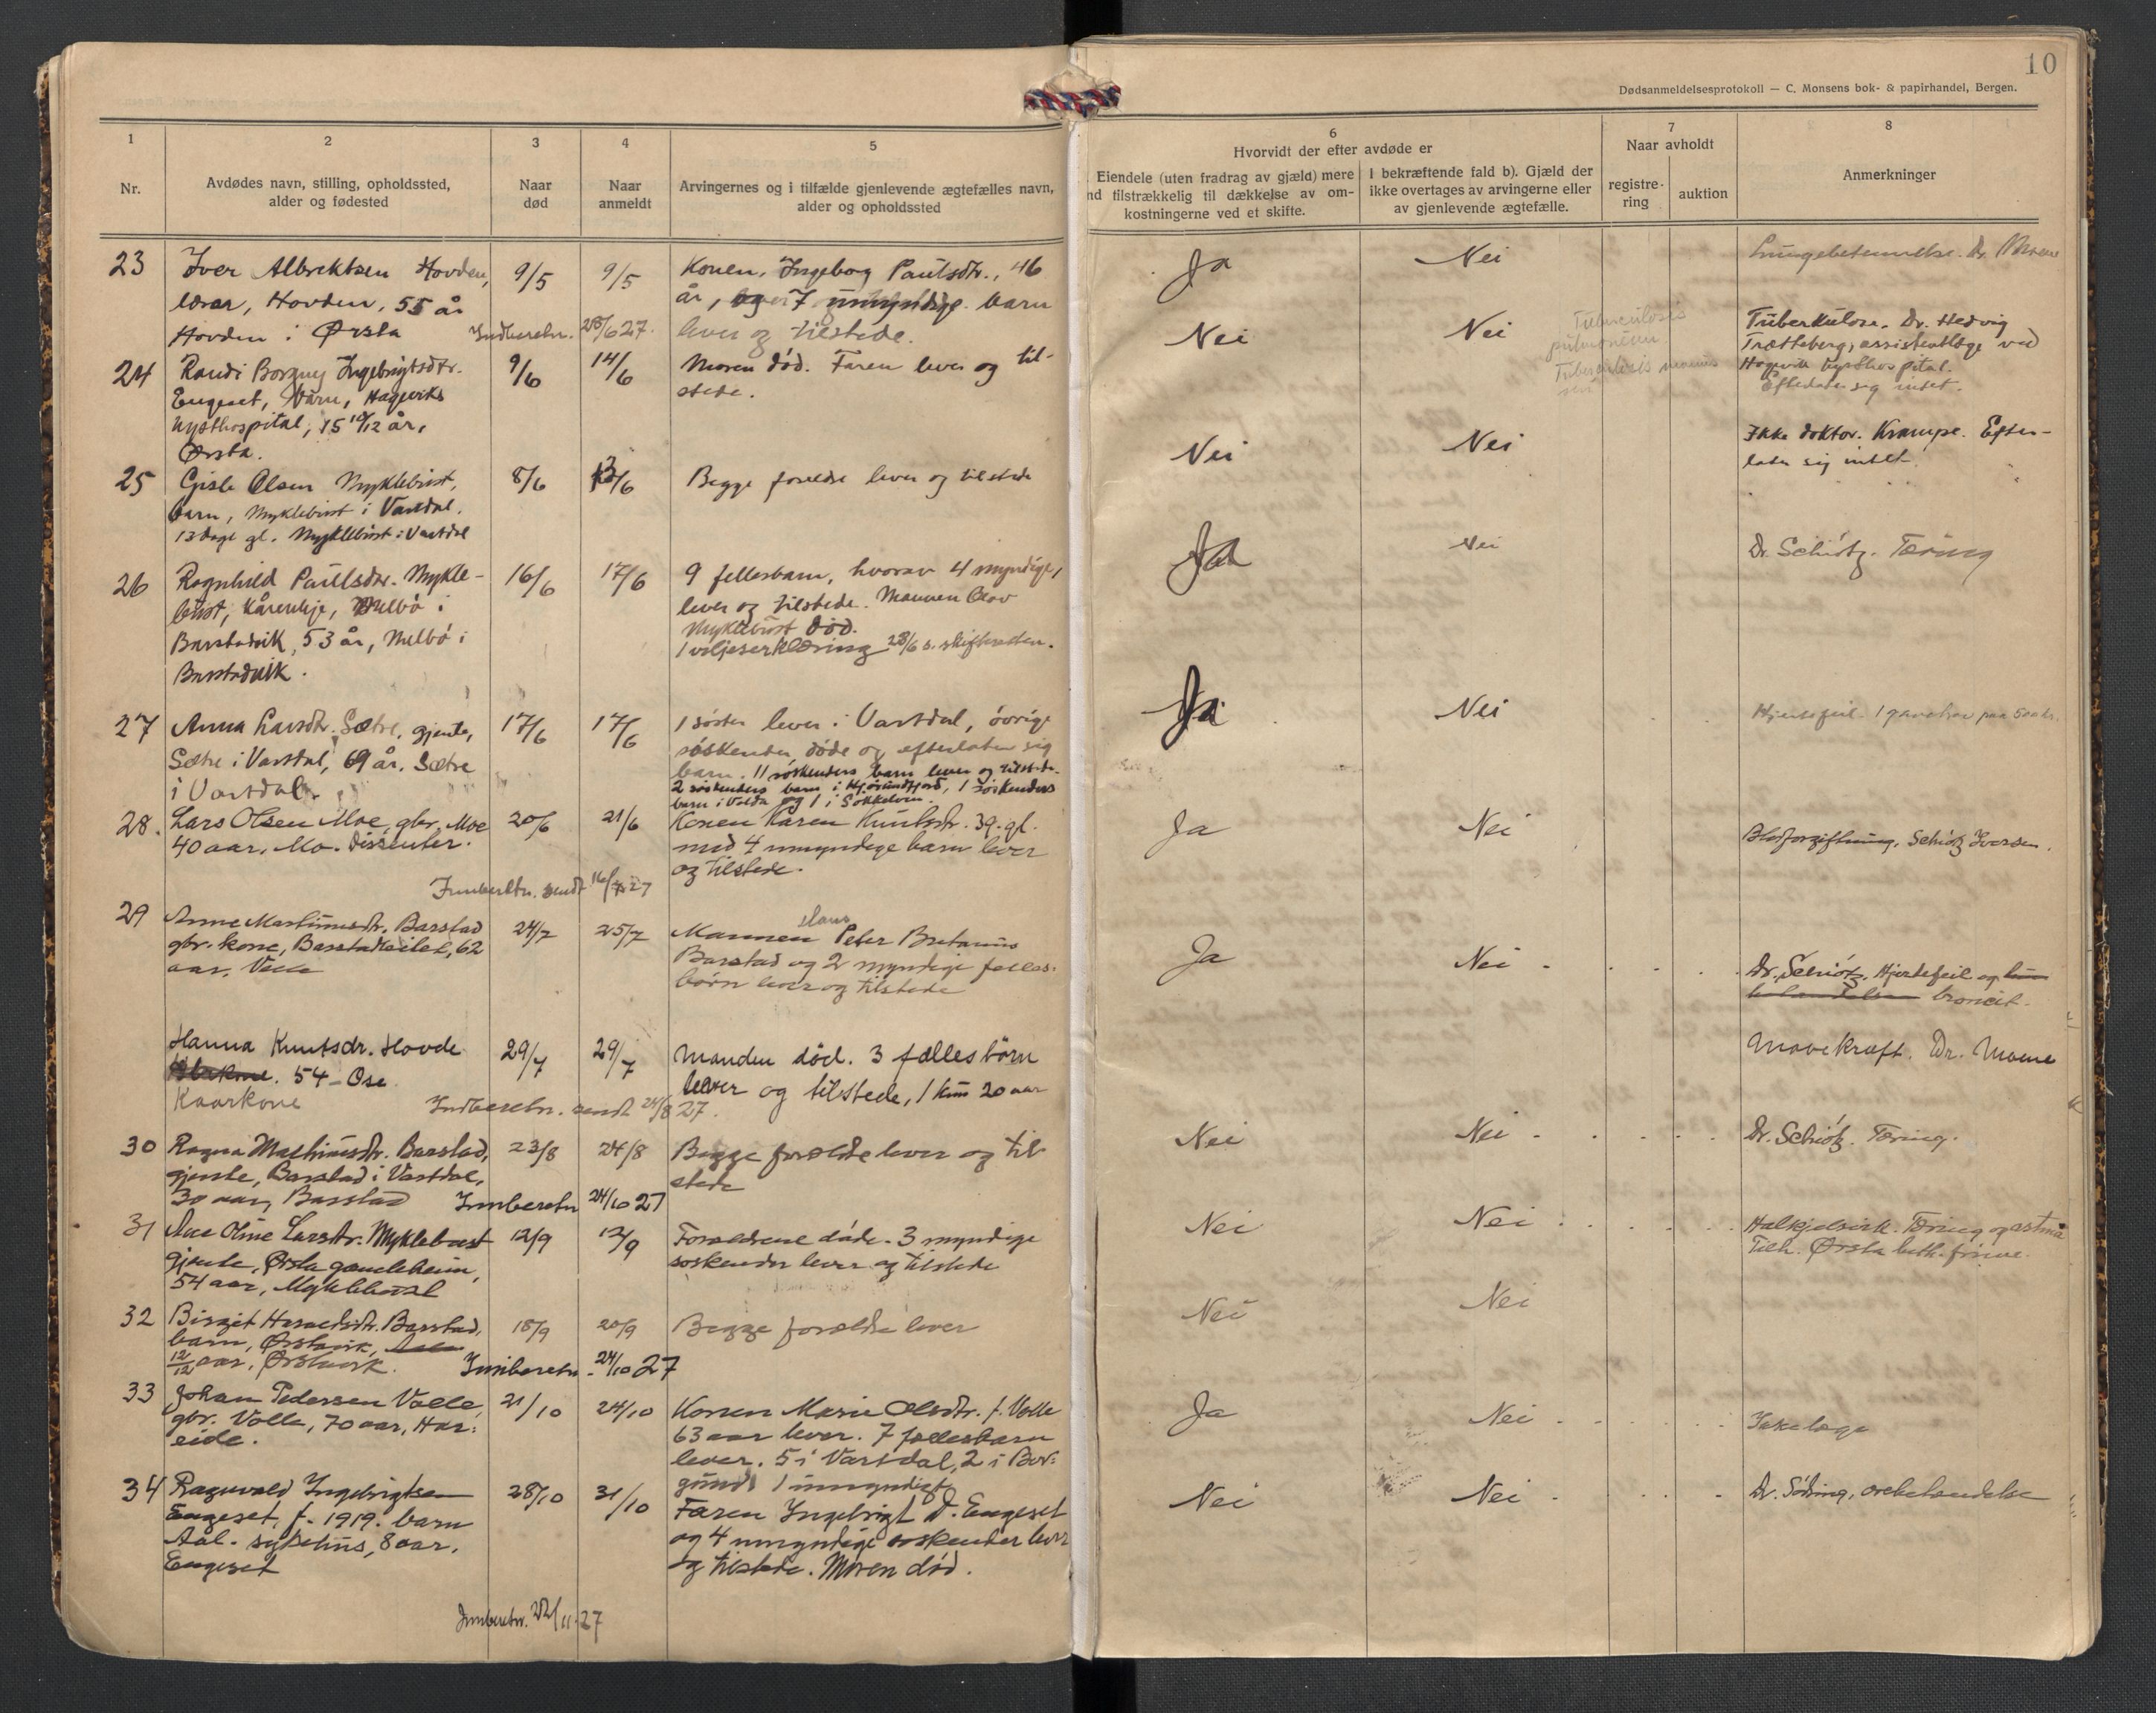 10
Dødsanmeldelsesprotokoll — C. Monsens bok- & papirhandel, Bergen.
1
Nr.
2
Avdødes navn, stilling, opholdssted,
alder og fødested
3
Naar
død
4
Naar
anmeldt
5
Arvingernes og i tilfælde gjenlevende ægtefælles navn,
alder og opholdssted
6
Hvorvidt der efter avdøde er
Eiendele (uten fradrag av gjæld) mere
nd tilstrækkelig til dækkelse av om-
kostningerne ved et skifte.
I bekræftende fald b). Gjæld der
ikke overtages av arvingerne eller
av gjenlevende ægtefælle.
7
Naar avholdt
registre-
ring
auktion
8
Anmerkninger
23
Iver Albrektsen Hovden,
lærar, Hovden, 55 år
Hovden i Ørsta
9/5
9/5
Konen, Ingebog Paulsdtr., 46
år, og 7 umyndige barn
lever og tilstede.
Ja
Nei
Lungebetennelse. Dr. Moene
Indberetn. 28/6 27.
24
Randi Borgny Ingebrigtsdtr.
Engeset, barn, Hageviks
kysthospital, 15 10/12 år,
Ørsta.
9/6
14/6
Moren død. Faren lever og til-
stede.
Nei
Nei
Tuberculosis
pulmonum
Tuberkulose. Dr. Hedvig
Trætteberg, assistentlæge ved
Hagevik kysthospital.
Efterlater sig intet.
25
Gisle Olsen Myklebust,
barn, Myklebust i Vartdal.
13 dage gl. Myklebust i Vartdal
8/6
13/6
Begge foreldre lever og tilstede
Nei
Nei
Ikke doktor. Krampe. Efter-
later sig intet.
26
Ragnhild Paulsdtr. Mykle-
bust, kårenkje, Melbø i
Barstadvik, 53 år, Melbø i
Barstadvik.
16/6
17/6
9 fellesbarn, hvorav 4 myndige,
lever og tilstede. Mannen Olav
Myklebust død.
1 viljeserklæring 28/6 s. skifteretten.
Ja
Nei
Dr. Schiøtz. Tæring
27
Anna Larsdtr. Sætre, gjente,
Sætre i Vartdal, 69 år. Sætre
i Vartdal.
17/6
17/6
1 søster lever i Vartdal, øvrige
søskender døde og efterlater sig
barn. 11 søskenders barn lever og tilstede.
2 søskenders barn i Hjørundfjord, 1 søskenders
barn i Volda og 1 i Søkkelven.
Ja
Nei
Hjertefeil. 1 gavebrev paa 500 kr.
28.
Lars Olsen Moe, gbr. Moe
40 aar. Mo. Dissenter.
20/6
21/6
Konen Karen Knutsdtr. 39. gl.
med 4 umyndige barn lever
og tilstede.
Ja
Nei
Blodforgiftning, Schiøtz Iversen.
Innberetn. sendt 16/7 27
29
Anne Martinusdtr. Barstad
gbr. kone, Barstadteilet, 62
aar. Velle
24/7
25/7
Hans
Mannen Peter Bretanus
Barstad og 2 myndige felles-
børn lever og tilstede
Ja
Nei
Dr. Schiøtz. Hjertefeil og
broncit.
Hanna Knutsdr. Hovde
54 - Ose
Kaarkone
29/7
29/7
Manden død. 3 fælles børn
lever og tilstede, 1 kun 20 aar
Mavekræft. Dr. Moene
Indberetn. sendt 24/8 27.
30
Ragna Mathiasdtr. Barstad,
gjente, Barstad i Vartdal,
30 aar, Barstad
23/8
24/8
Begge forældre lever og til-
stede
Nei
Nei
Dr. Schiøtz. Tæring.
Innberetn 24/10 27
31
Ane Oline Larsdtr. Myklebust
gjente, Ørsta gamleheim,
54 aar, Myklebust
12/9
13/9
Forældrene døde. 3 myndige
søskender lever og tilstede
Nei
Nei
Halkjelsvik. Tæring og astma
Tilh. Ørsta luth. frimen.
32
Birgit Haraldsdtr. Barstad,
barn, Ørstavik,
12/12 aar, Ørstavik.
18/9
20/9
Begge forældre lever
Nei
Nei
Innberetn. 24/10 27
33
Johan Pedersen Velle
gbr. Velle, 70 aar, Har-
eide.
21/10
24/10
Konen Marie Olsdtr. f. Velle
63 aar lever. 7 fellesbarn
lever. 5 i Vartdal, 2 i Bor-
gund 1 umyndigt
Ja
Nei
Ikke læge
34
Ragnvald Ingebrigtsen
Engeset, f. 1919. barn
Aal. sykehus, 8 aar.
Engeset
28/10
31/10
Faren Ingebrigt D. Engeset
og 4 umyndige søskender lever
og tilstede. Moren død.
Nei
Nei
Dr. Søring, ørebetendelse
Innberetn. 22/11-27